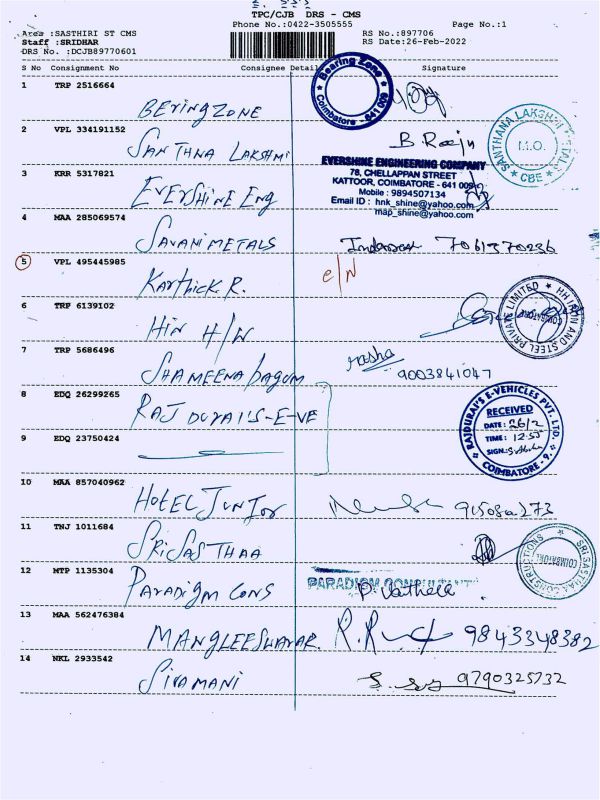 TPC/CJB DRS - CMS
Phone No.:0422-3505555 Page No.:1
Area :SASTHIRI ST CMS RS No.:897706
Staff :SRIDHAR RS Date:26-Feb-2022
DRS No. :DCJB89770601
S No Consignment No Consignee Detail Signature
1 TRP 2516664 Bearing Zone
Coimbatore - 641 009
BEringZONE
2 VPL 334191152 B. Raju SANTHANA LAKSHMI
I.I.O.
CBE
SANTHNA LAKSHMI
3 KRR 5317821 EVERSHINE ENGINEERING COMPANY
78, CHELLAPPAN STREET
KATTOOR, COIMBATORE - 641 009
Mobile : 9894507134
Email ID : hnk_shine@yahoo.com
map_shine@yahoo.com
EVErShinE Eng
4 MAA 285069574
SAVANI METALS 7061370236
5 VPL 495445985
Karthick. R. e/N
6 TRF 6139102 HH IRON AND STEEL PRIVATE LIMITED
COIMBATORE
Hin H/W
7 TRP 5686496
SHAMEENA bagum 9003841047
8 EDQ 26299265 RAJDURAI'S E-VEHICLES PVT. LTD.
RECEIVED
DATE: 26/2
TIME: 12:55
SIGN:
COIMBATORE - 9.
RAJ DURAI'S-E-VE
9 EDQ 23750424
10 MAA 857040962
HOTEL JUNIOr
11 TNJ 1011684 SRI SASTHAA CONSTRUCTIONS
COIMBATORE
SRI SASTHAA
12 MTP 1135304 PARADIGM CONSULTANT
Paradigm Cons
13 MAA 562476384
MANGLEESHWAR. 9843348382
14 NKL 2933542
SIVAMANI 9790325732